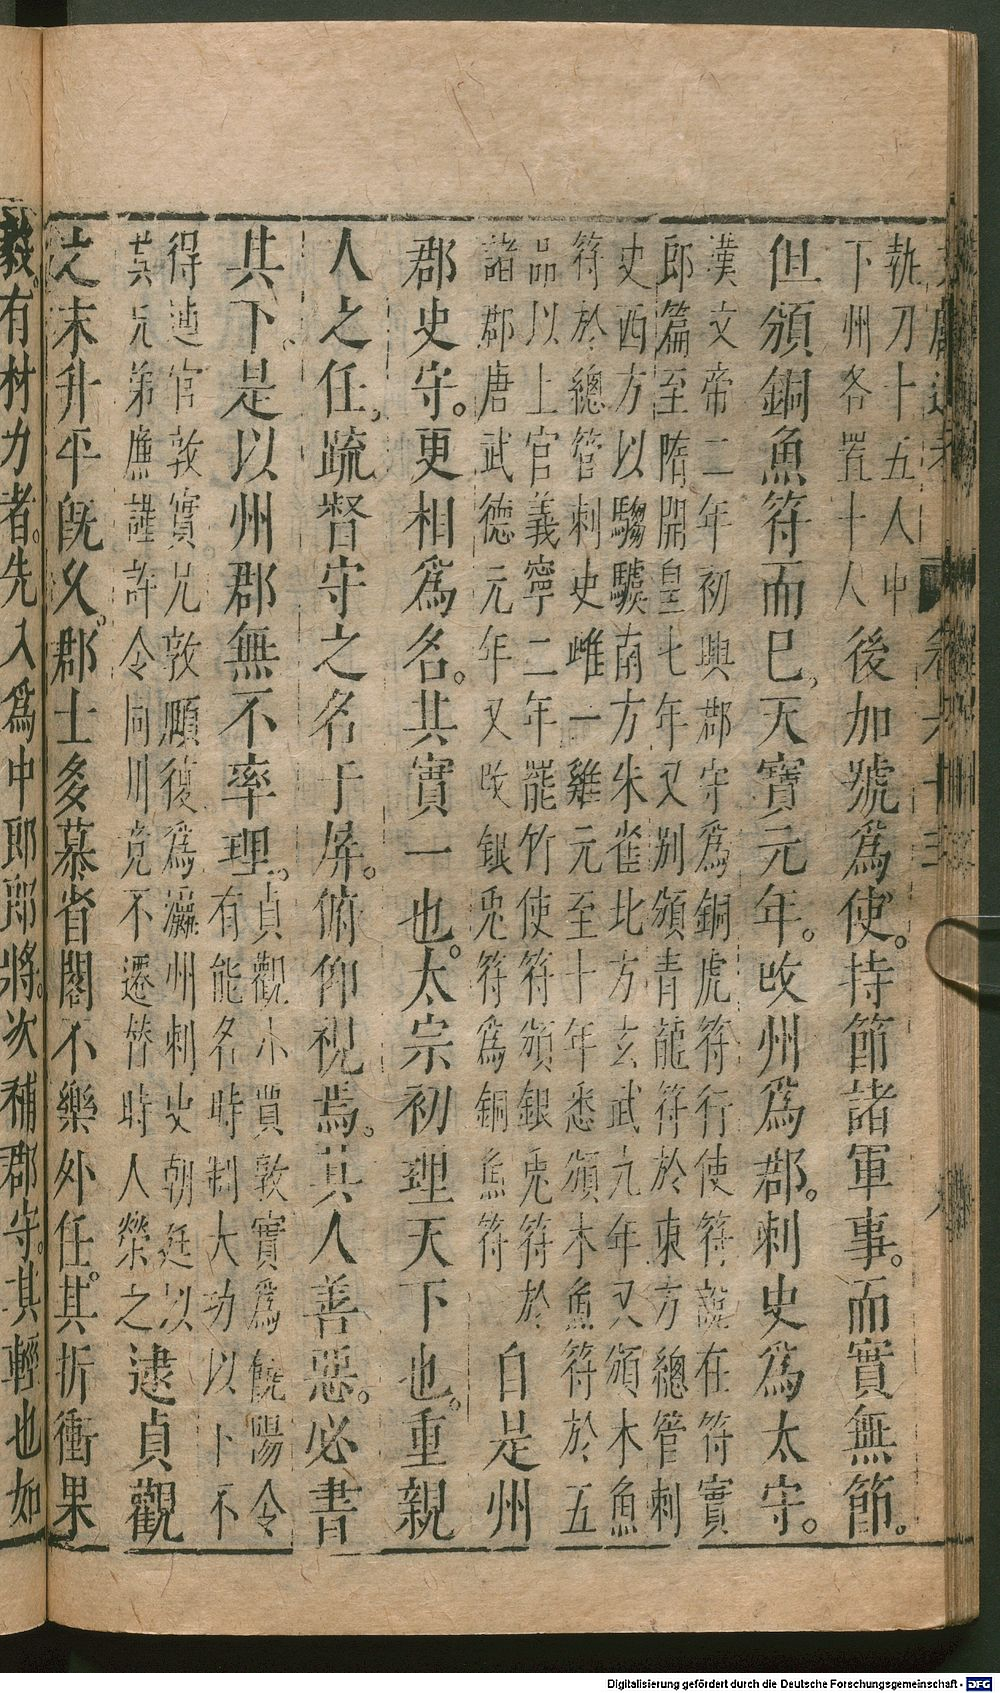 執刀十五人中
下州各置十人
後加號爲使。持節諸軍事。而實無節。
但頒銅魚符而已,天寶元年。改州爲郡。刺史爲太守。
漢文帝二年初興郡守爲銅虎符行使符說在符寶
郎篇至隋開皇七年又别頒青龍符於東方總管刺
史西方以騶驥南方朱雀北方玄武九年又頒木魚
符於總管刺史雌一雞元至十年悉頒木魚符於五
品以上官義寧二年罷竹使符頒銀兎符於
諸郡唐武德元年又改銀兎符爲銅魚符
自是州
郡史守。更相爲名。其實一也。太宗初理天下也。重親
人之任,疏督守之名于屏。俯仰視焉。其人善惡。必書
其下、是以州郡無不率理。
貞觀小賈敦實爲饒陽令
有能名時制大功以上不
得連官敦實兄敦頤復爲瀛州刺史朝廷以
其兄弟廉謹許令同州竟不遷替時人榮之
逮貞觀
之末升平旣久。郡士多慕省閣不樂外任。其折衝果
毅。有材力者。先入爲中郎郎將。次補郡守。其輕也如
Digitalisierung gefördert durch die Deutsche Forschungsgemeinschaft - DFG